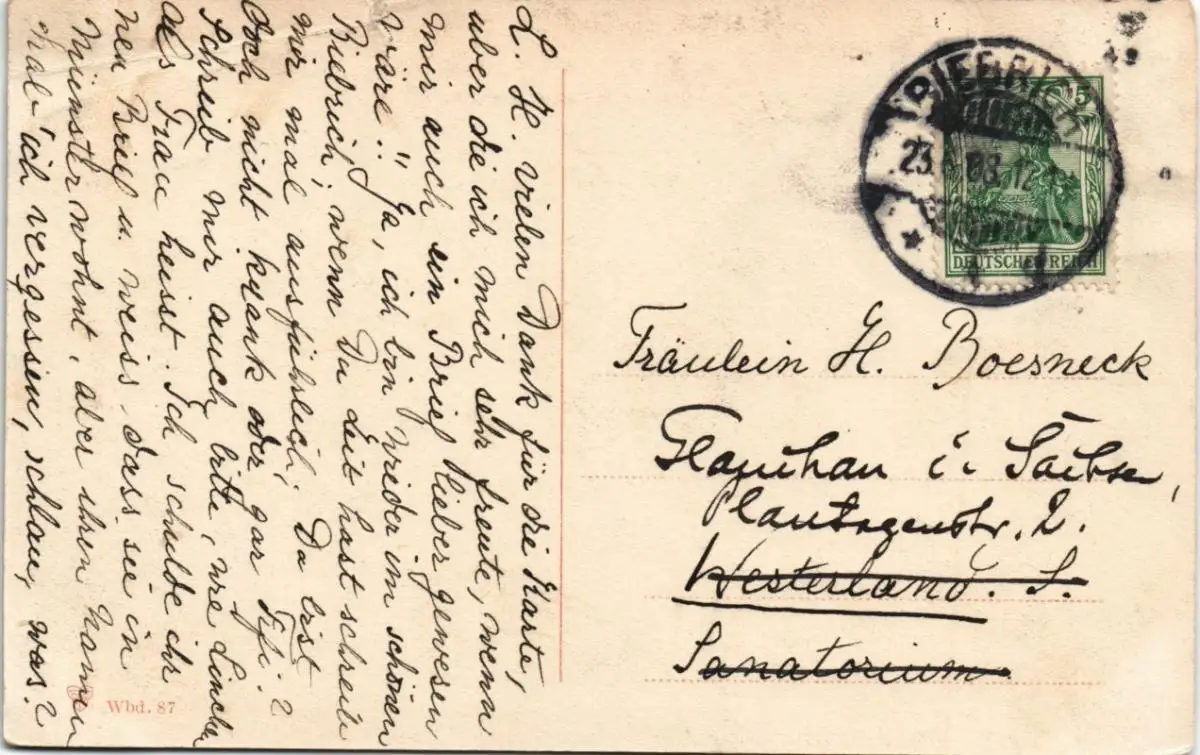 L. H. vielen Dank für die Karte,
über die ich mich sehr freute, wenn
mir auch ein Brief lieber gewesen
wäre!! Ja, ich bin wieder im schönen
Biebrich, wenn Du Zeit hast schreib
mir mal ausführlich; Du bist
doch nicht krank oder gar Fifi?
Schreib mir auch, bitte, wie Linchen
als Frau heisst. Ich schulde ihr
nen Brief u. weiss, dass sie in
Münster wohnt, aber ihren Namen
hab' ich vergessen, schlau, was?
Wbd. 87
BIEBRICH
23. 08. 12
5
DEUTSCHES REICH
Fräulein H. Boesneck
Glauchau i. Sachsen,
Plantagenstr. 2.
Westerland. S.
Sanatorium